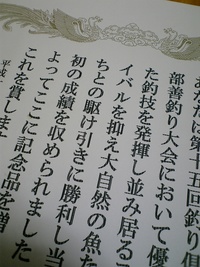 あなたは第十五回釣り倶
部善釣り大会において優
た釣技を発揮し並み居る
イバルを抑え大自然の魚た
ちとの駆け引きに勝利し当
初の成績を収められました
よってここに記念品を贈
これを賞しま
平成